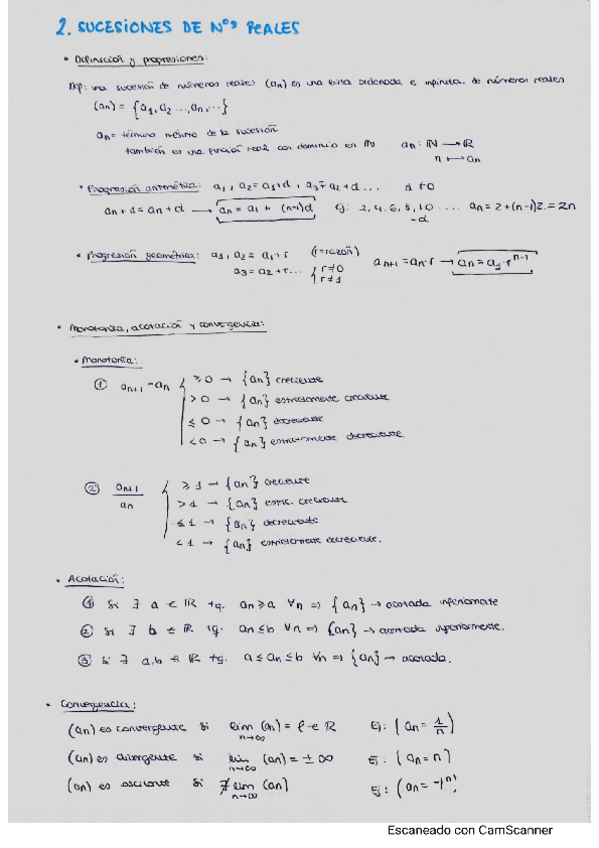 2. SUCESIONES DE Nºs REALES
• Definición y progresiones:
Def: una sucesión de números reales (an) es una lista ordenada e infinita de números reales
(an) = {a1, a2 ..., an, ...}
an = término n-ésimo de la sucesión
también es una función real con dominio en ℕ   an: ℕ → ℝ
n ↦ an
• Progresión aritmética: a1, a2 = a1+d, a3 = a2+d ...   d ≠ 0
an+1 = an + d → an = a1 + (n-1)d   Ej: 2, 4, 6, 8, 10 ....   an = 2+(n-1)2 = 2n
• Progresión geométrica: a1, a2 = a1 + r   (r = razón)
a3 = a2 + r...   { r≠0   an+1 = an·r → an = a1·r^n-1
r≠1
• Monotonía, acotación y convergencia:
• Monotonía:
① an+1 - an { ≥ 0 → {an} creciente
> 0 → {an} estrictamente creciente
≤ 0 → {an} decreciente
< 0 → {an} estrictamente decreciente
② an+1/an { ≥ 1 → {an} creciente
> 1 → {an} estric. creciente
≤ 1 → {an} decreciente
< 1 → {an} estrictamente decreciente.
• Acotación:
① Si ∃ a ∈ ℝ tq. an ≥ a ∀n => {an} → acotada inferiormente
② Si ∃ b ∈ ℝ tq. an ≤ b ∀n => {an} → acotada superiormente.
③ Si ∃ a,b ∈ ℝ tq. a ≤ an ≤ b ∀n => {an} → acotada.
• Convergencia:
(an) es convergente si lim n→∞ (an) = ℓ ∈ ℝ   Ej: (an = 1/n)
(an) es divergente si lim n→∞ (an) = ± ∞   Ej: (an = n)
(an) es oscilante si ∄ lim n→∞ (an)   Ej: (an = -1^n)
Escaneado con CamScanner